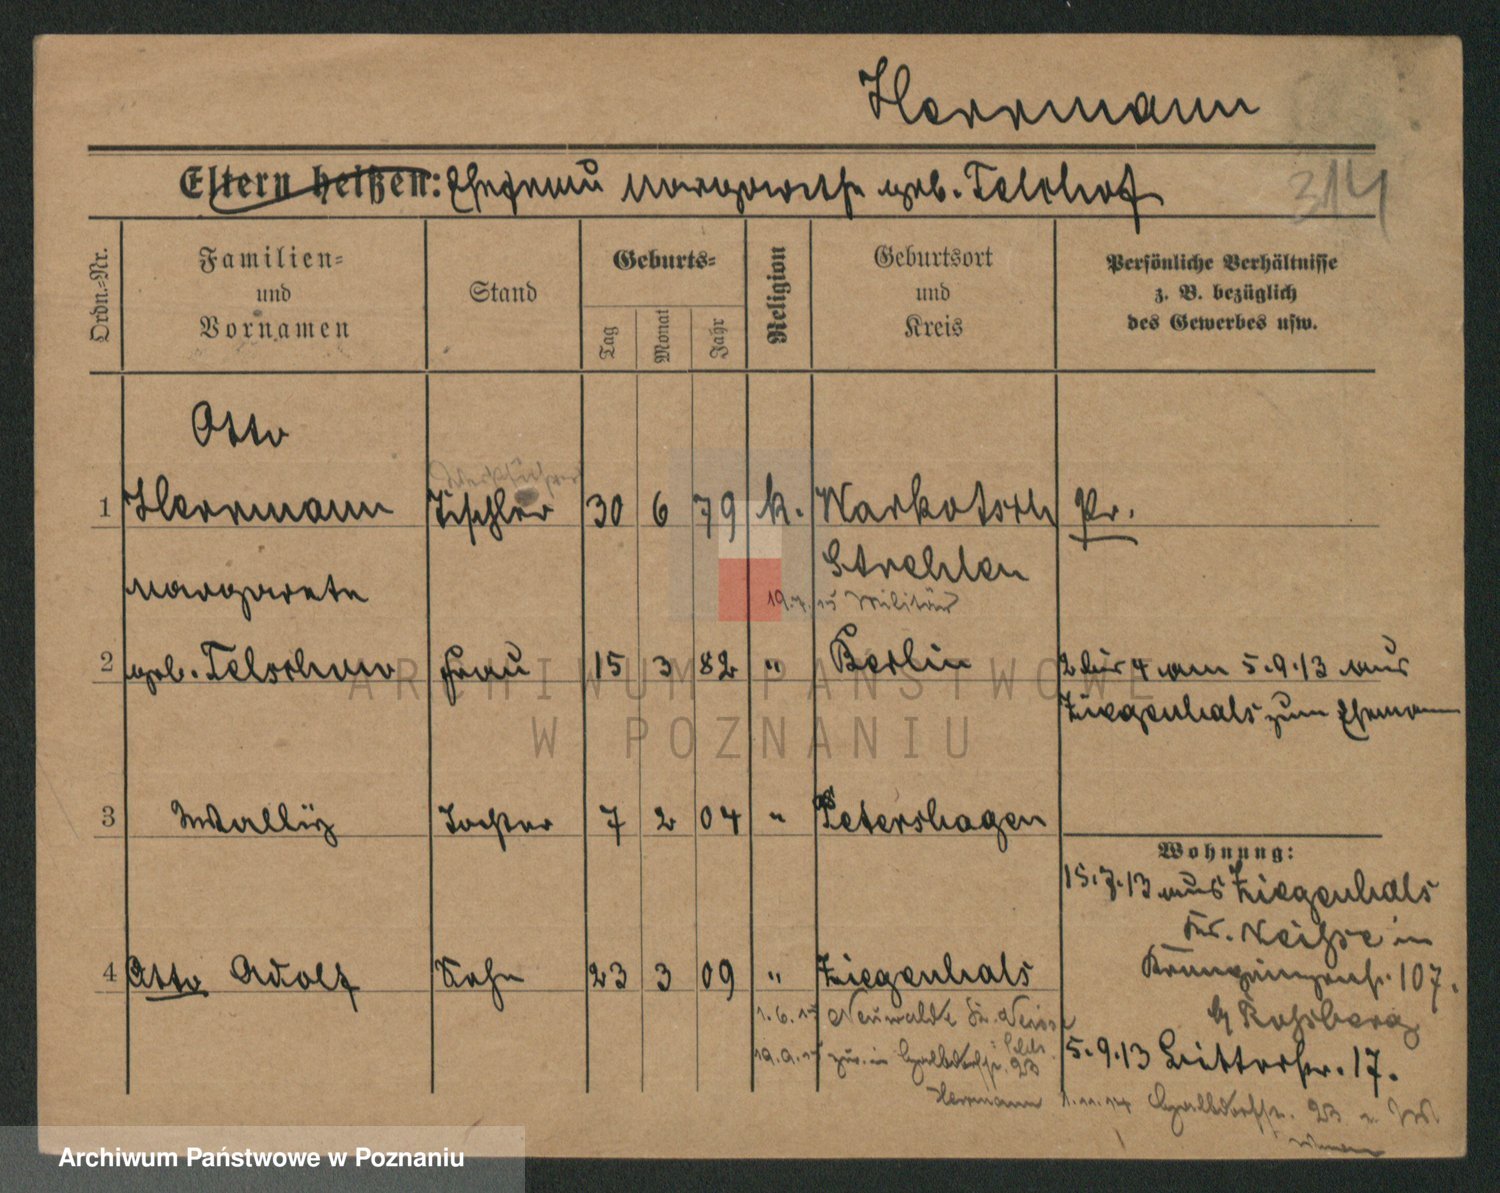 Herrmann
314
Eltern heißen: Ehefrau Margarethe geb. Telschow
Ordn.-Nr.
Familien-
und
Vornamen
Stand
Geburts-
Tag
Monat
Jahr
Religion
Geburtsort
und
Kreis
Persönliche Verhältnisse
z. B. bezüglich
des Gewerbes usw.
Otto
1 Herrmann Tischler 30 6 79 k. Warkotsch Pr.
Strehlen
Margarete
19.7.15 Militär
2 geb. Telschow Frau 15 3 82 " Berlin 2 bis 4 am 5.9.13 aus
Ziegenhals zum Ehemann
3 Tochter 7 2 04 " Petershagen
Wohnung:
15.7.13 aus Ziegenhals
Kr. Neisse in
107.
4 Otto Adolf Sohn 23 3 09 " Ziegenhals
b/ Rossberg
1.6.15 Neuwalde Kr. Neisse
5.9.13 17.
23
Herrmann 1.11.14 23
ARCHIWUM PAŃSTWOWE
W POZNANIU
Archiwum Państwowe w Poznaniu